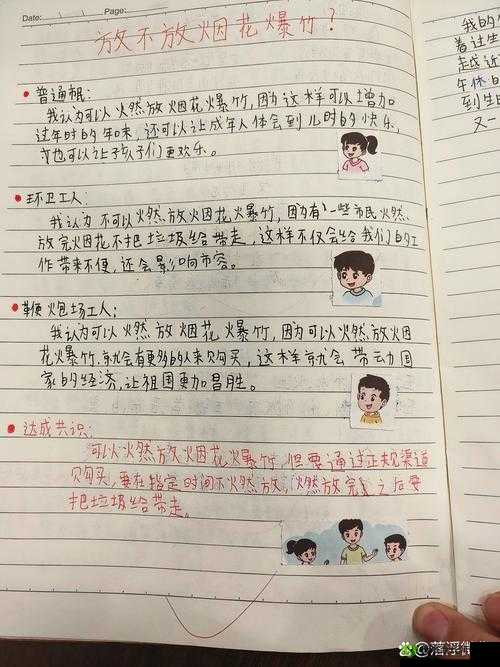 Date:
Page:
放不放烟花爆竹？
普通民：
我认为可以火然放烟花爆竹，因为这样可以增加
过年时的年味，还可以让成年人体会到儿时的快乐，
也可以让孩子们更欢乐。
环卫工人：
我认为不可以火然放烟花爆竹，因为有一些市民火然
放完烟花不把垃圾给带走，这样不仅会给我们的工
作带来不便，还会影响市容。
鞭炮场工人：
我认为可以火然放烟花爆竹，因为可以火然放烟
花爆竹，就会有更多的人来购买，这样就会带动国
家的经济，让祖国更加昌胜。
达成共识：
可以火然放烟花爆竹，但要通过正规渠道
购买，要在指定时间火然放，火然放完之后要
把垃圾给带走。
我的
着过生
越近
午休
到生日
又一
@落浮微